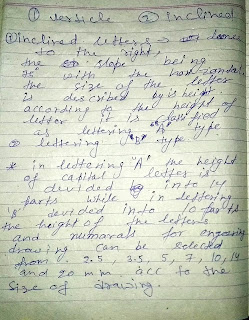 ① verticle ② Inclined
① Inclined letters → lines
to the right,
the slope being
75 with the horizontal
the size of the letter
is described by its height
according to the height of
letter it is classified
as lettering "A" type
② lettering "B" type
* in lettering "A" the height
of capital letter is
divided into 14
parts while in lettering
B divided into 10 parts
the height of the letters
and numarals for engineering
drawing can be selected
from 2.5, 3.5 5, 7, 10, 14
and 20 mm acc to the
size of drawing.